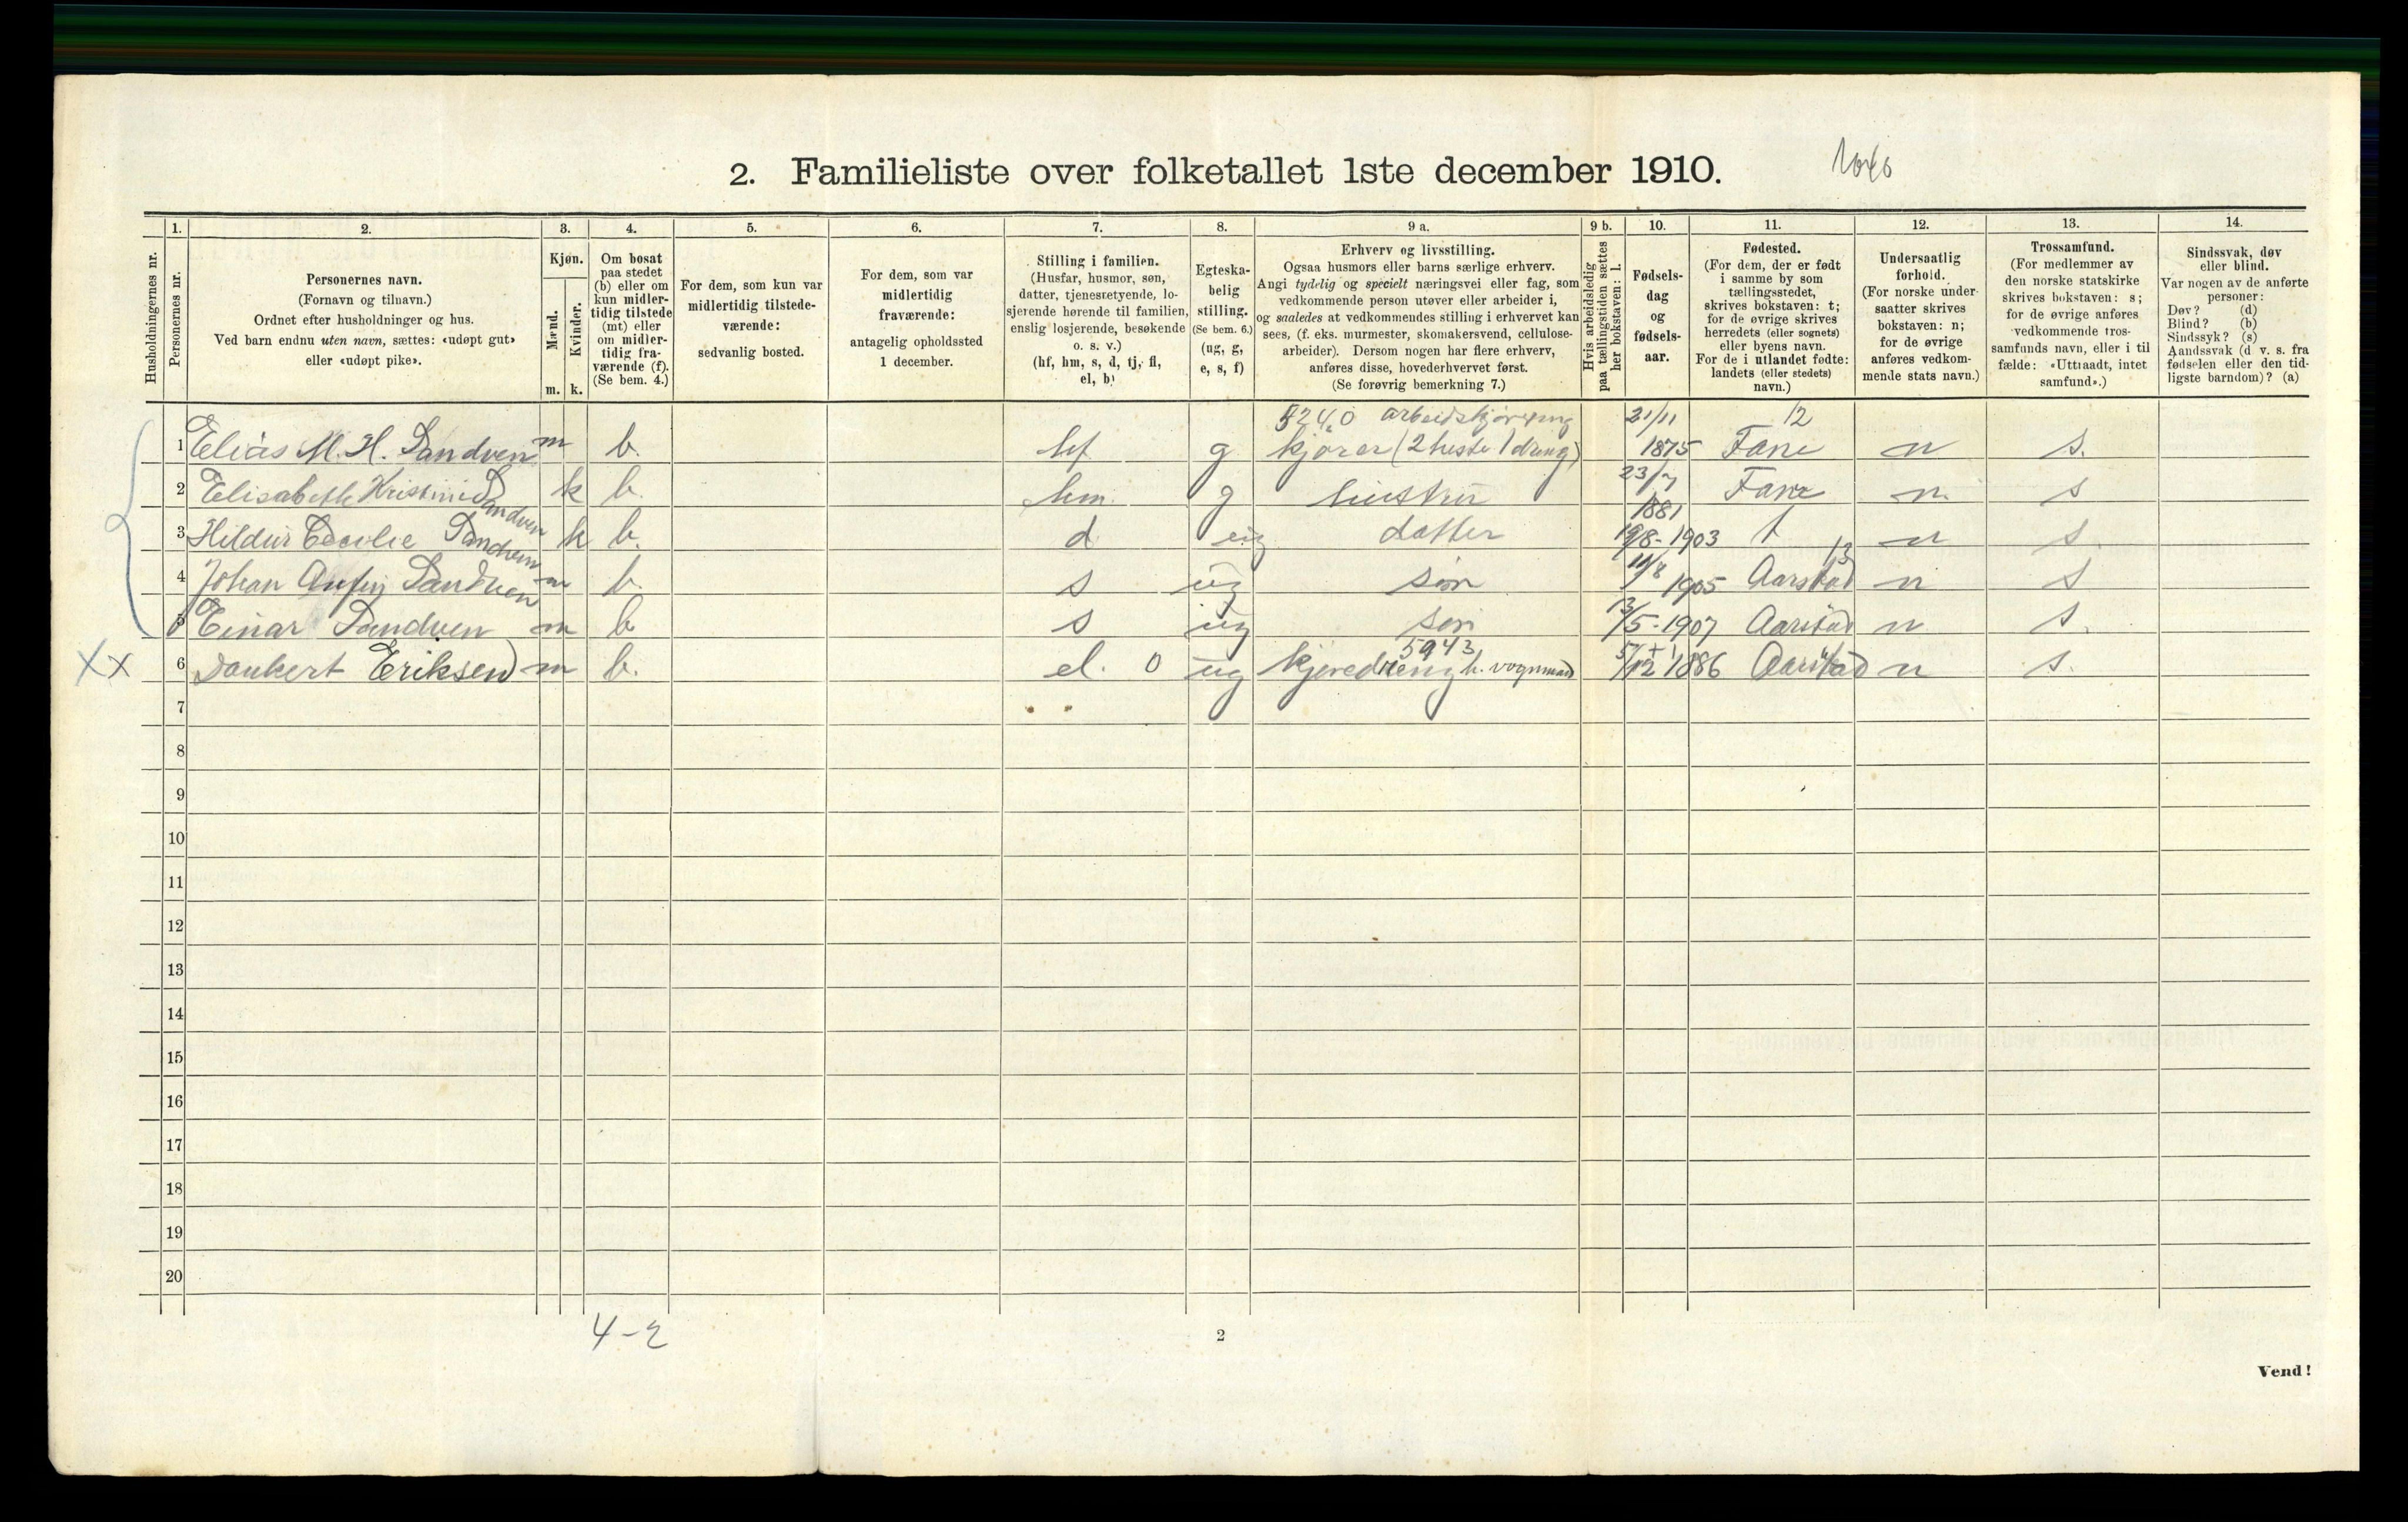 2. Familieliste over folketallet 1ste december 1910.
Husholdningernes nr.
1.
Personernes nr.
2.
Personernes navn.
(Fornavn og tilnavn.)
Ordnet efter husholdninger og hus.
Ved barn endnu uten navn, sættes: «udøpt gut»
eller «udøpt pike».
3.
Kjøn.
Mænd.
Kvinder.
m. k.
4.
Om bosat
paa stedet
(b) eller om
kun midler-
tidig tilstede
(mt) eller
om midler-
tidig fra-
værende (f).
(Se bem. 4.)
5.
For dem, som kun var
midlertidig tilstede-
værende:
sedvanlig bosted.
6.
For dem, som var
midlertidig
fraværende:
antagelig opholdssted
1 december.
7.
Stilling i familien.
(Husfar, husmor, søn,
datter, tjenestetyende, lo-
sjerende hørende til familien,
enslig losjerende, besøkende
o. s. v.)
(hf, hm, s, d, tj, fl,
el, b)
8.
Egteska-
belig
stilling.
(Se bem. 6.)
(ug, g,
e, s, f)
9 a.
Erhverv og livsstilling.
Ogsaa husmors eller barns særlige erhverv.
Angi tydelig og specielt næringsvei eller fag, som
vedkommende person utøver eller arbeider i,
og saaledes at vedkommendes stilling i erhvervet kan
sees, (f. eks. murmester, skomakersvend, cellulose-
arbeider). Dersom nogen har flere erhverv,
anføres disse, hovederhvervet først.
(Se forøvrig bemerkning 7.)
9 b.
Hvis arbeidsledig
paa tællingstiden sættes
her bokstaven: l.
10.
Fødsels-
dag
og
fødsels-
aar.
11.
Fødested.
(For dem, der er født
i samme by som
tællingsstedet,
skrives bokstaven: t;
for de øvrige skrives
herredets (eller sognets)
eller byens navn.
For de i utlandet fødte:
landets (eller stedets)
navn.)
12.
Undersaatlig
forhold.
(For norske under-
saatter skrives
bokstaven: n;
for de øvrige
anføres vedkom-
mende stats navn.)
13.
Trossamfund.
(For medlemmer av
den norske statskirke
skrives bokstaven: s;
for de øvrige anføres
vedkommende tros-
samfunds navn, eller i til
fælde: «Uttraadt, intet
samfund».)
14.
Sindssvak, døv
eller blind.
Var nogen av de anførte
personer:
Døv? (d)
Blind? (b)
Sindssyk? (s)
Aandssvak (d v. s. fra
fødselen eller den tid-
ligste barndom)? (a)
arbeidskjøring 21/11 12
1 Elias M. H. Sandven m b. hf g kjører (2 heste 1 dreng) 1875 Fane n s.
2 Elisabeth Kristine Sandven k b. hm. g hustru 23/7 1881 Fane n. s
3 Hildur Cecilie Sandven k b. d ug datter 19/8-1903 t n s.
4 Johan Anfin Sandven m b. s ug søn 11/8 1905 Aarstad 13 n s
5 Einar Sandven m b s ug søn 13/5-1907 Aarstad n s.
5943
XX 6 Dankert Eriksen m b. el. 0 ug kjøredreng h. vognmand 5/12 1886 Aarstad n s.
7
8
9
10
11
12
13
14
15
16
17
18
19
20
4-2
2
Vend!